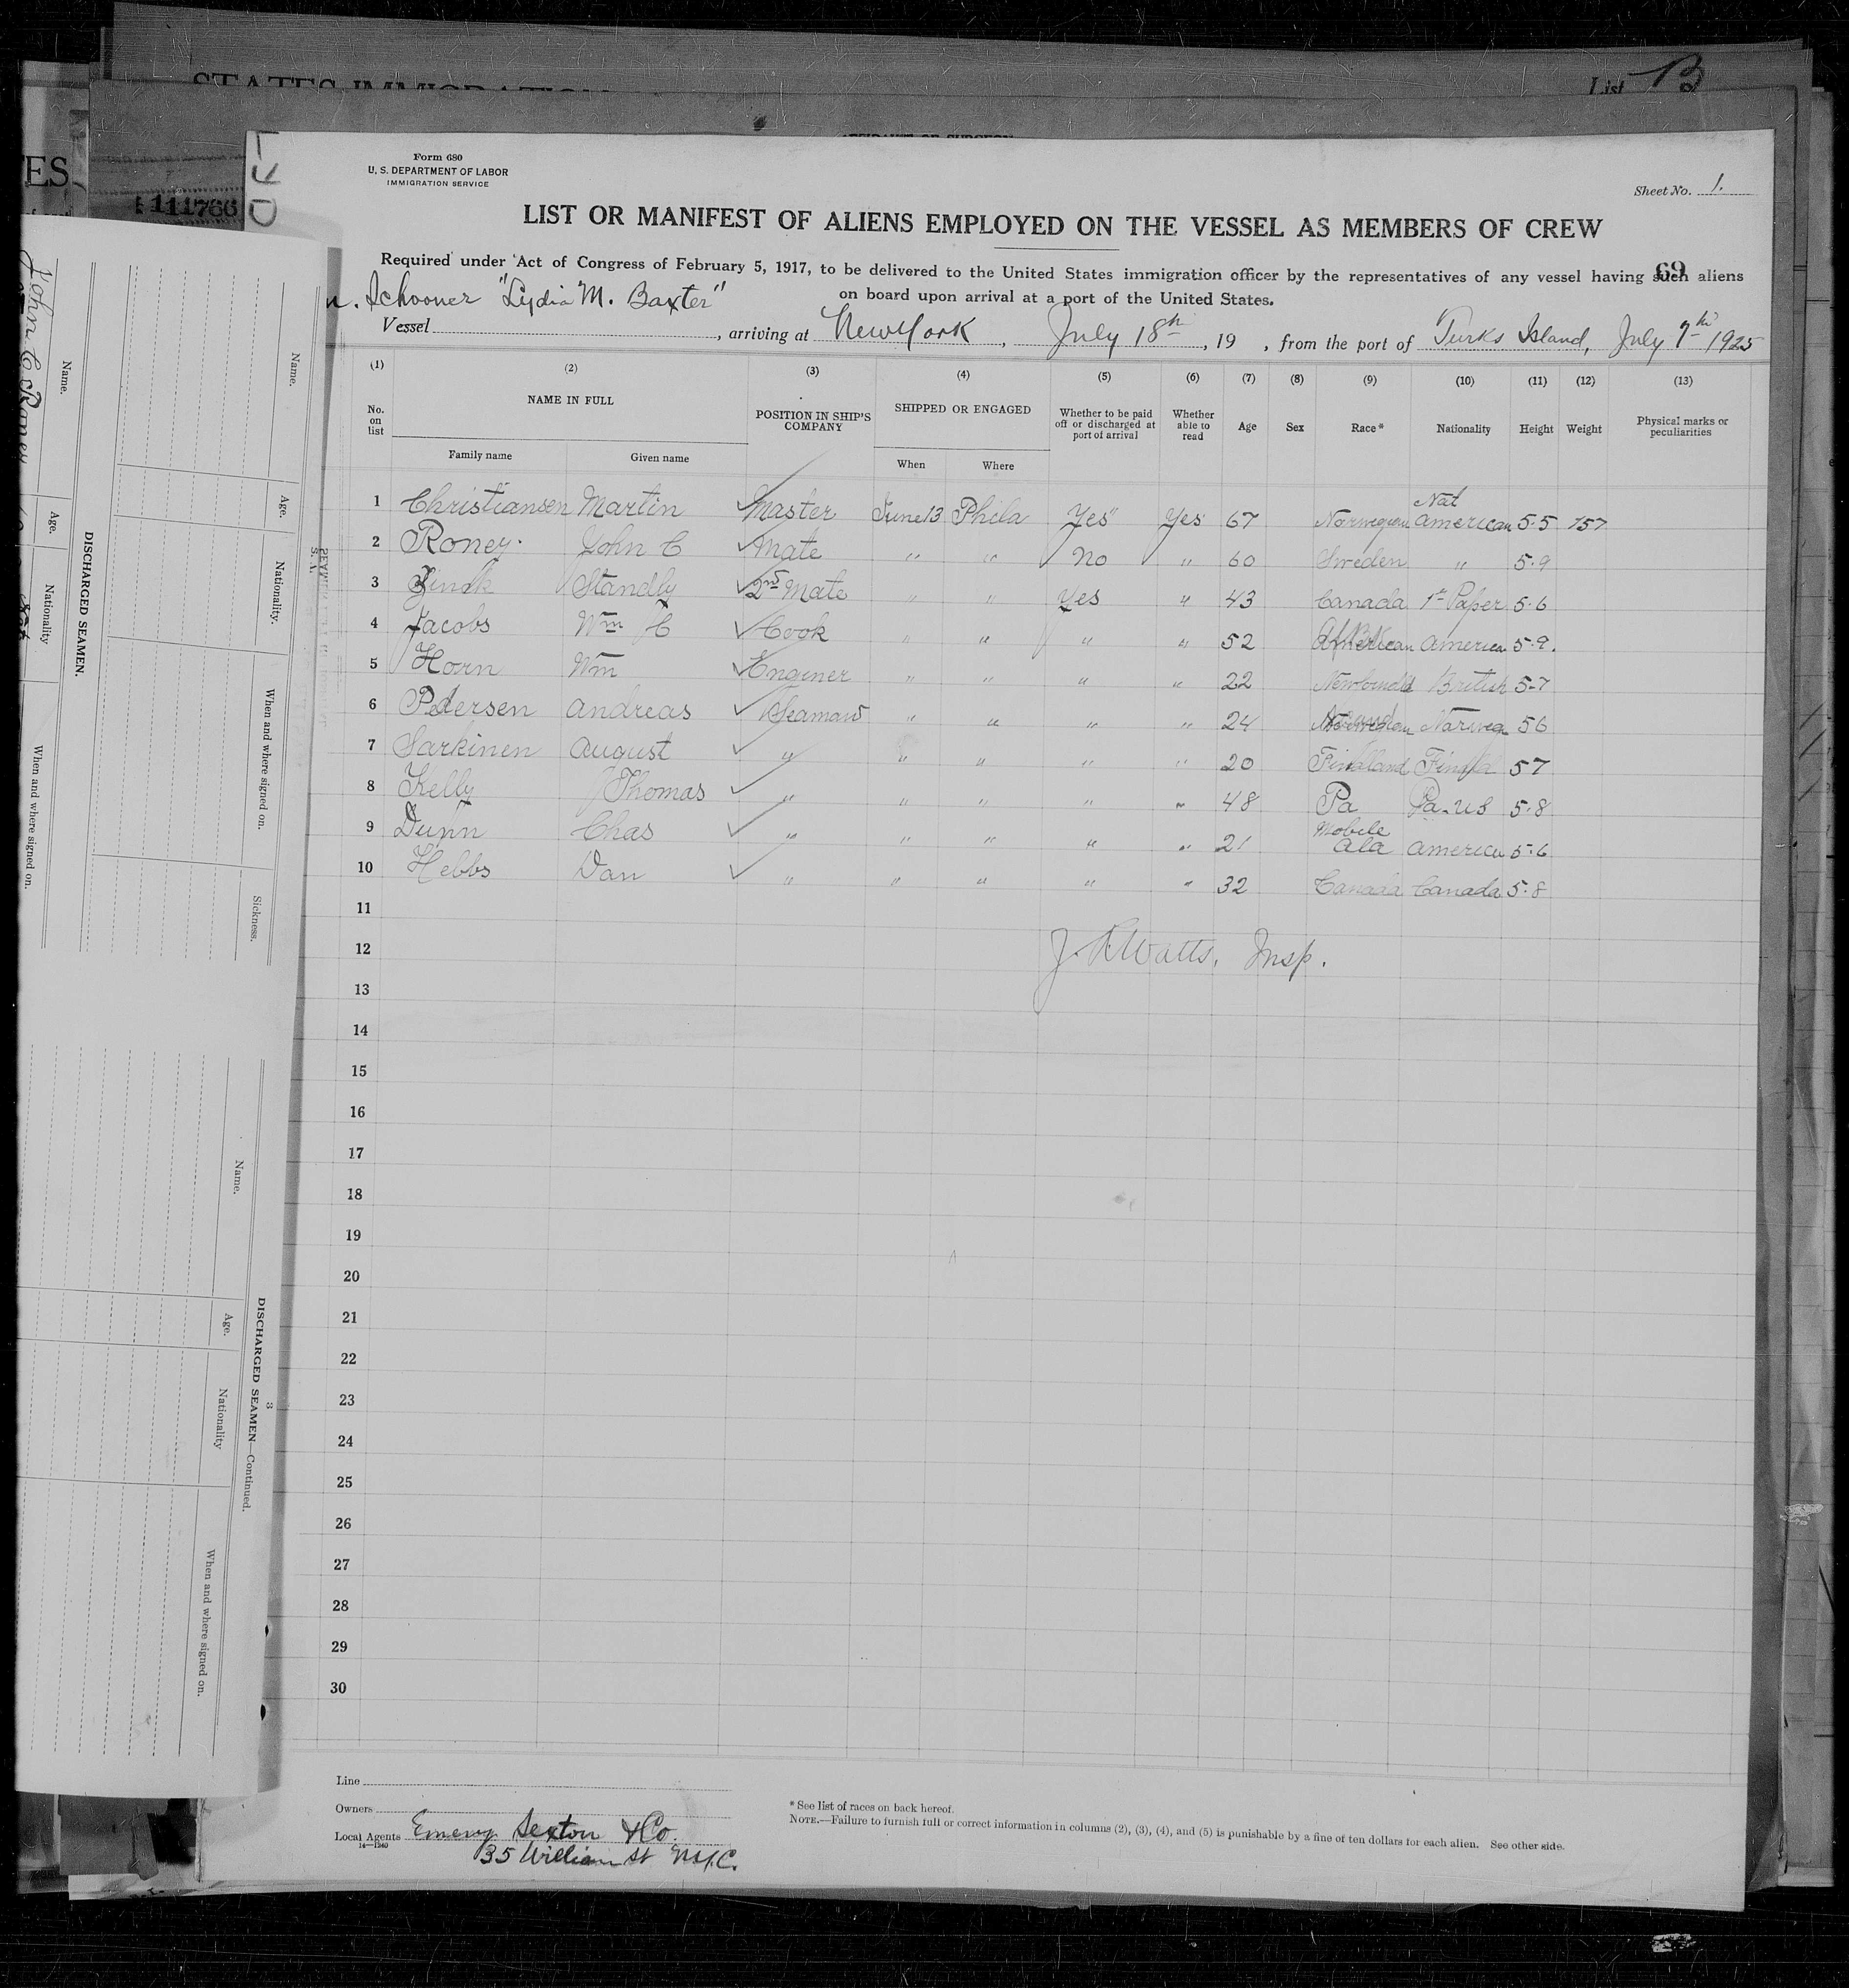 STATES IMMIGRATION
List B
AFFIDAVIT OF SURGEON
ES
111766
Form 680
U. S. DEPARTMENT OF LABOR
IMMIGRATION SERVICE
Sheet No. 1.
LIST OR MANIFEST OF ALIENS EMPLOYED ON THE VESSEL AS MEMBERS OF CREW
69
Required under Act of Congress of February 5, 1917, to be delivered to the United States immigration officer by the representatives of any vessel having such aliens
on board upon arrival at a port of the United States.
Schooner "Lydia M. Baxter"
Vessel , arriving at New York , July 18th , 19 , from the port of Turks Island, July 7th 1925
(1) (2) (3) (4) (5) (6) (7) (8) (9) (10) (11) (12) (13)
No. on list NAME IN FULL POSITION IN SHIP'S COMPANY SHIPPED OR ENGAGED Whether to be paid off or discharged at port of arrival Whether able to read Age Sex Race* Nationality Height Weight Physical marks or peculiarities
Family name Given name When Where
1 Christiansen Martin Master June 13 Phila Yes Yes 67 Norwegian Nat American 5.5 157
2 Roney John C Mate " " No " 60 Sweden " 5.9
3 Zinck Standly 2nd Mate " " Yes " 43 Canada 1st Paper 5.6
4 Jacobs Wm H Cook " " " " 52 American America 5.9.
5 Horn Wm Enginer " " " " 22 British 5-7
6 Pedersen Andreas Seaman " " " " 24 56
7 Sarkinen August " " " " " 20 Findland 57
8 Kelly Thomas " " " " " 48 Pa Pa. US 5.8
9 Dunn Chas " " " " " 21 Mobile Ala America 5.6
10 Hebbs Dan " " " " " 32 Canada Canada 5.8
11
12 Watts, Insp.
13
14
15
16
17
18
19
20
21
22
23
24
25
26
27
28
29
30
Line
Owners
Local Agents Emery Sexton & Co.
14—1240
35 William St N.Y.C.
* See list of races on back hereof.
NOTE.—Failure to furnish full or correct information in columns (2), (3), (4), and (5) is punishable by a fine of ten dollars for each alien. See other side.
DISCHARGED SEAMEN.
Name. Age. Nationality When and where signed on.
John C Roney
Name. Age. Nationality. When and where signed on. Sickness.
3
DISCHARGED SEAMEN—Continued.
Name. Age. Nationality When and where signed on.